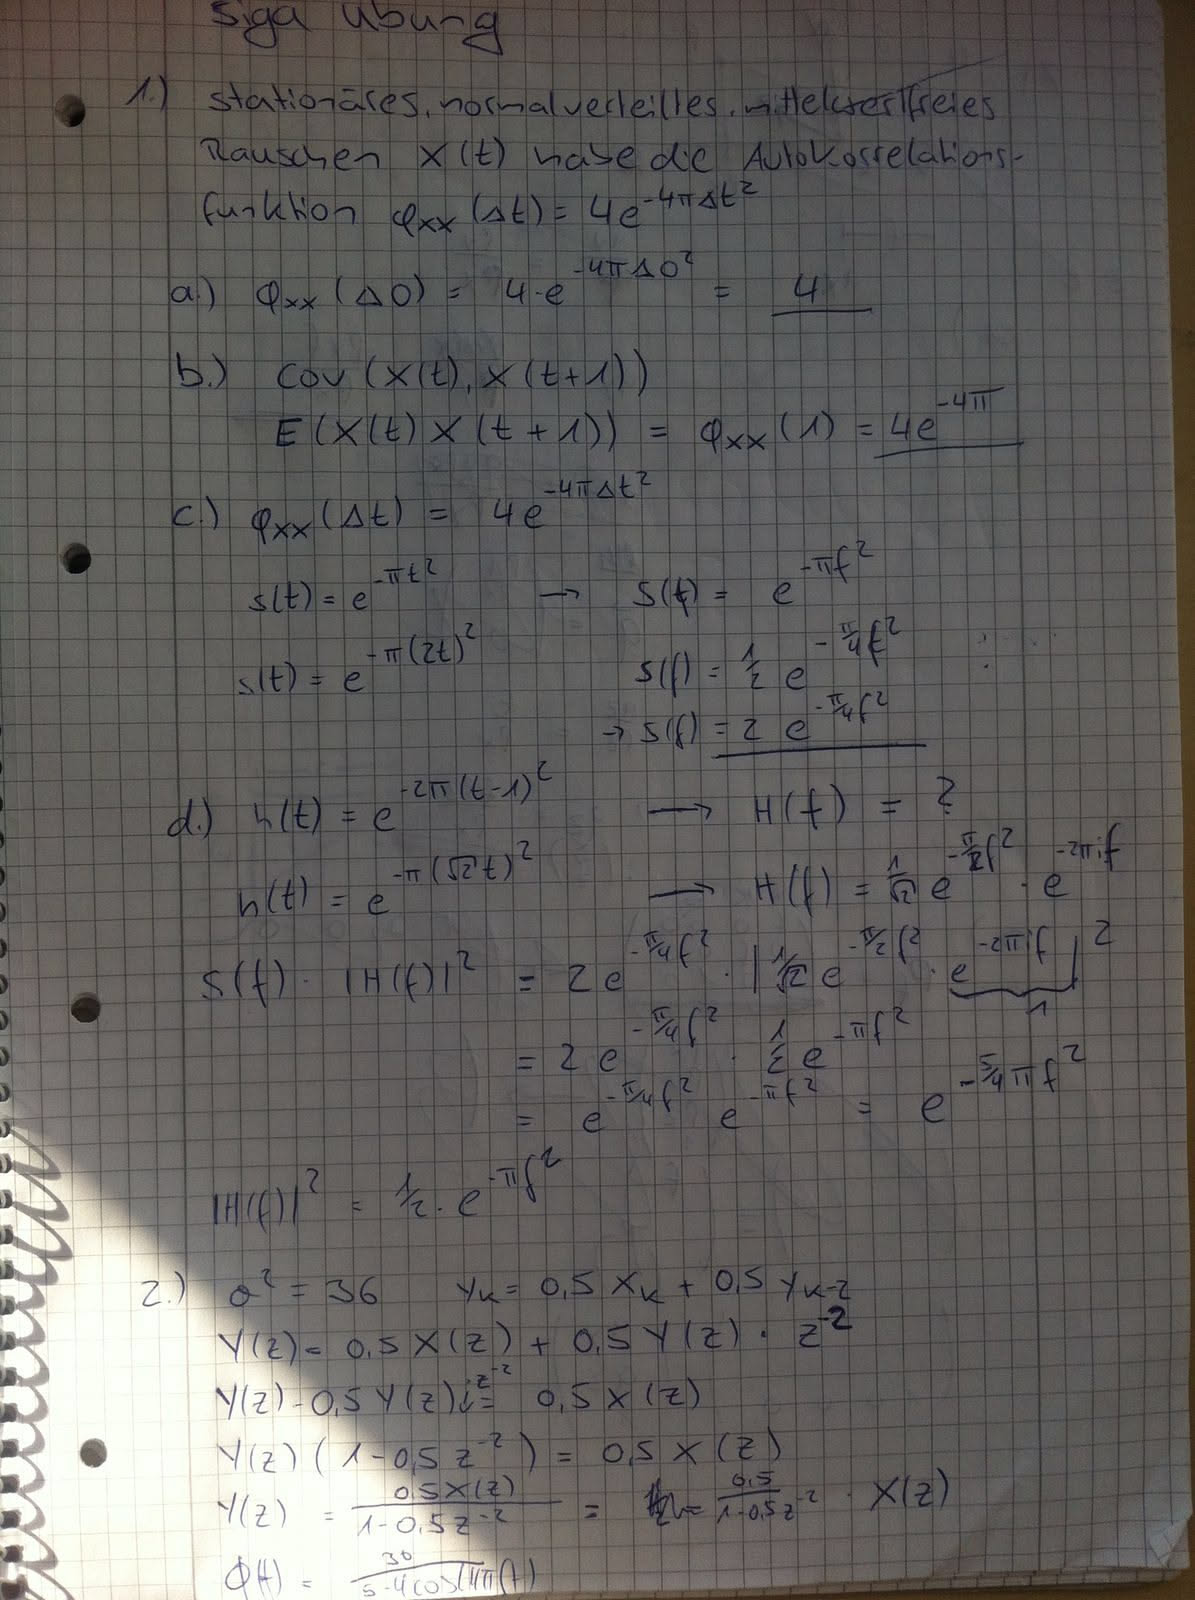 Siga Übung
1.) stationäres, normalverteiltes, mittelwertfreies
Rauschen X(t) habe die Autokorrelations-
funktion φxx(Δt) = 4e^-4πΔt²
a.) φxx(Δ0) = 4·e^-4πΔ0² = 4
b.) Cov(X(t), X(t+1))
E(X(t) X(t+1)) = φxx(1) = 4e^-4π
c.) φxx(Δt) = 4e^-4πΔt²
s(t) = e^-πt² → S(f) = e^-πf²
s(t) = e^-π(2t)² S(f) = 1/2 e^-π/4f²
→ S(f) = 2 e^-π/4f²
d.) h(t) = e^-2π(t-1)² → H(f) = ?
h(t) = e^-π(√2t)² → H(f) = 1/√2 e^-π/2f² · e^-2πif
S(f) · |H(f)|² = 2e^-π/4f² · |1/√2 e^-π/2f² · e^-2πif|²
1
= 2e^-π/4f² · 1/2 e^-πf²
= e^-π/4f² e^-πf² = e^-5/4πf²
|H(f)|² = 1/2 · e^-πf²
2.) σ² = 36 yk = 0,5 xk + 0,5 yk-2
Y(z) = 0,5 X(z) + 0,5 Y(z) · z^-2
Y(z) - 0,5 Y(z) z^-2 = 0,5 X(z)
Y(z) (1 - 0,5 z^-2) = 0,5 X(z)
Y(z) = 0,5X(z)/1-0,5z^-2 = = 0,5/1-0,5z^-2 · X(z)